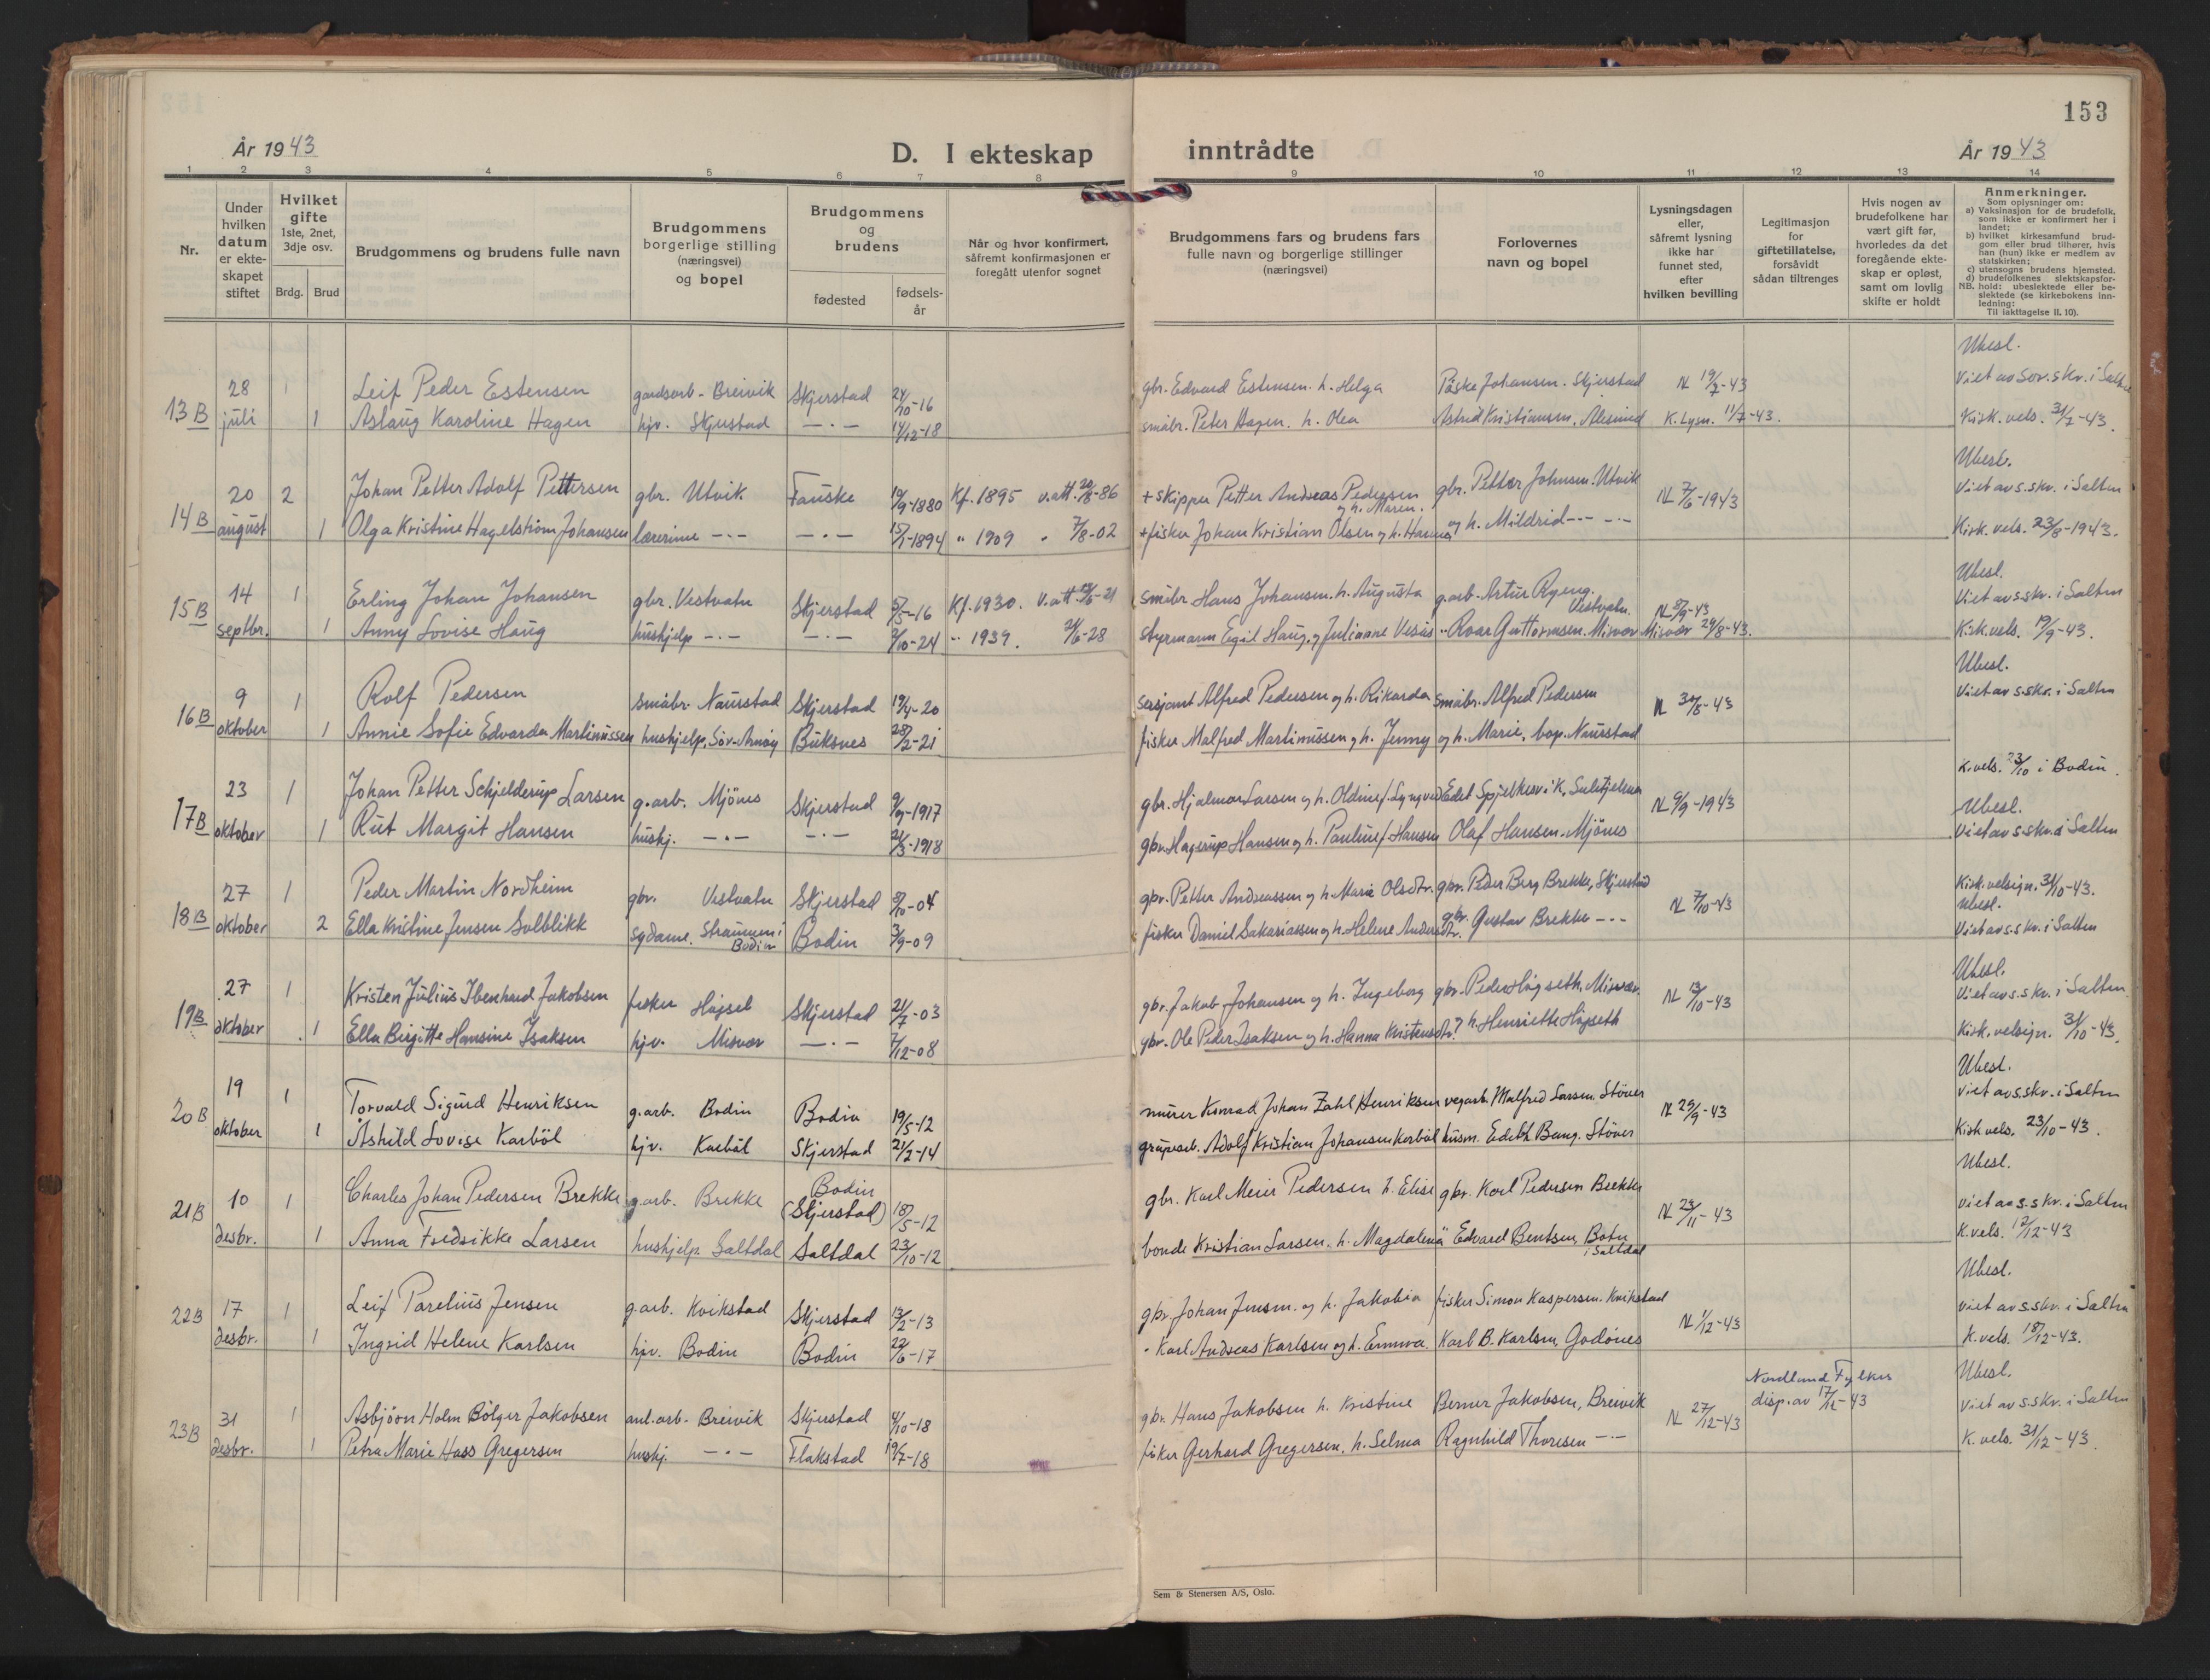 153
År 1943
D. I ekteskap inntrådte
År 1943
1 2 3 4 5 6 7 8 9 10 11 12 13 14
Nr.
Under hvilken datum er ekteskapet stiftet
Hvilket gifte 1ste, 2net, 3dje osv.
Brdg. Brud
Brudgommens og brudens fulle navn
Brudgommens borgerlige stilling (næringsvei) og bopel
Brudgommens og brudens
fødested
fødsels-år
Når og hvor konfirmert, såfremt konfirmasjonen er foregått utenfor sognet
Brudgommens fars og brudens fars fulle navn og borgerlige stillinger (næringsvei)
Forlovernes navn og bopel
Lysningsdagen eller, såfremt lysning ikke har funnet sted, efter hvilken bevilling
Legitimasjon for giftetillatelse, forsåvidt sådan tiltrenges
Hvis nogen av brudefolkene har vært gift før, hvorledes da det foregående ekteskap er opløst, samt om lovlig skifte er holdt
Anmerkninger.
Som oplysninger om:
a) Vaksinasjon for de brudefolk, som ikke er konfirmert her i landet;
b) hvilket kirkesamfund brudgom eller brud tilhører, hvis han (hun) ikke er medlem av statskirken;
c) utensogns brudens hjemsted.
d) brudefolkenes slektskapsforhold: ubeslektede eller beslektede (se kirkebokens innledning:
NB.
Til iakttagelse II. 10).
Ubesl.
13B 28 juli 1 Leif Peder Estensen gardsarb. Breivik Skjerstad 24/10-16 gbr. Edvard Estensen. h. Helga Påske Johansen. Skjerstad N 19/7-43 Viet av Sor.skr. i Salten
1 Aslaug Karoline Hagen hjv. Skjerstad —·— 14/12-18 småbr. Peter Hagen. h. Olea Astrid Kristiansen, Alesund K. Lysn. 11/7-43. Kirk. vels. 31/7-43.
Ubesl.
14B 20 august 2 Johan Petter Adolf Pettersen gbr. Utvik Fauske 19/9-1880 Kf. 1895 v.att. 20/8-86 + skipper Petter Andreas Pedersen og h. Maren. gbr. Petter Johnsen. Utvik N 7/6-1943 Viet av s.skr. i Salten
1 Olga Kristine Hagelstrøm Johansen lærerinne —·— —·— 15/1-1894 " 1909 " 7/8-02 + fisker Johan Kristian Olsen og h. Hanna og h. Mildrid —·— Kirk. vels. 23/8-1943.
Ubesl.
15B 14 septbr. 1 Erling Johan Johansen gbr. Vestvatn Skjerstad 5/5-16 Kf. 1930. småbr Hans Johansen. h. Augusta g.arb. Artur Ryeng. Vestvatn. N 8/9-43 Viet av s.skr. i Salten
1 Anny Lovise Haug hushjelp —·— —·— 2/10-24 " 1939. 24/6-28 styrmann Egil Haug, og Julianne Roar Guttormsen. Misvær Misvær 29/8-43. Kirk. vels. 19/9-43.
Ubesl.
16B 9 oktober 1 Rolf Pedersen småbr. Naurstad Skjerstad 19/4-20 sersjant Alfred Pedersen og h. Rikarda småbr. Alfred Pedersen N 30/8-43 Viet av s.skr. i Salten
1 Annie Sofie Edvarda Martinussen hushjelp, Sør-Arnøy Buksnes 28/2-21 fisker Malfred Martinussen og h. Jenny og h. Marie, bop. Naurstad
K. vels. 23/10 i Bodin.
17B 23 oktober 1 Johan Petter Schjelderup Larsen g.arb. Mjönes Skjerstad 9/9-1917 gbr. Hjalmar Larsen og h. Oldine f. Lyngved Edel Spjelkavik, Sulitjelma N 9/9-1943 Ubesl.
1 Rut Margit Hansen hushj. —·— —·— 24/3-1918 gbr. Hagerup Hansen og h. Pauline f. Hansen Olaf Hansen. Mjönes Viet av s.skr. i Salten
18B 27 oktober 1 Peder Martin Nordheim gbr. Vestvatn Skjerstad 8/10-04 gbr. Petter Andreassen og h. Marie Olsdtr. gbr. Peder Berg Brekke, Skjerstad N 7/10-43 Kirk.velsign. 31/10-43. Ubesl.
2 Ella Kristine Jensen Solblikk sydame. Straumen i Bodin Bodin 3/9-09 fisker Daniel Sakariassen og h. Helene Andersdtr. gbr. Gustav Brekke —·— Viet av s.skr. i Salten
Ubesl.
19B 27 oktober 1 Kristen Julius Ibenhard Jakobsen fisker Högset Skjerstad 21/7-03 gbr. Jakob Johansen og h. Ingeborg gbr. Peder Högseth, Misvær. N 13/10-43 Viet av s.skr. i Salten.
1 Ella Birgitte Hansine Isaksen hjv. Misvær —·— 7/12-08 gbr. Ole Peder Isaksen og h. Hanna Kristensdtr. og h. Henriette Högseth Kirk. velsign. 31/10-43.
Ubesl.
20B 19 oktober 1 Torvald Sigurd Henriksen g.arb. Bodin Bodin 19/5-12 murer Konrad Johan Zahl Henriksen vegarb. Malfred Larsen. Stöver N 29/9-43 Viet av s.skr. i Salten
1 Åshild Lovise Karböl hjv. Karböl Skjerstad 21/2-14 gruvearb. Adolf Kristian Johansen Karböl husm. Edith Bang. Stöver Kirk vels. 23/10-43.
Ubesl.
21B 10 desbr. 1 Charles Johan Pedersen Brekke g.arb. Brekke Bodin (Skjerstad) 18/5-12 gbr. Karl Meier Pedersen h. Elise gbr. Karl Pedersen Brekke N 23/11-43 Viet av s.skr. i Salten
1 Anna Fredrikke Larsen hushjelp Saltdal Saltdal 23/10-12 bonde Kristian Larsen. h. Magdalena Edvard Bentsen, Botn i Saltdal K. vels. 12/12-43
Ubesl.
22B 17 desbr. 1 Leif Parelius Jensen g.arb. Kvikstad Skjerstad 13/2-13 gbr. Johan Jensen. og h. Jakobia fisker Simon Kaspersen. Kvikstad N 1/12-43 Viet av s.skr. i Salten
1 Ingrid Helene Karlsen hjv. Bodin Bodin 22/6-17 " Karl Andreas Karlsen og h. Emma. Karl B. Karlsen, Godönes K. vels. 18/12-43.
Ubesl.
23B 31 desbr. 1 Asbjörn Holm Bölger Jakobsen anl.arb. Breivik Skjerstad 4/10-18 gbr. Hans Jakobsen h. Kristine Berner Jakobsen, Breivik N 27/12-43 Nordland Fylkes disp. av 17/12-43 Viet av s.skr. i Salten
1 Petra Marie Hass Gregersen hushj. —·— Flakstad 19/7-18 fisker Gerhard Gregersen, h. Selma Ragnhild Thoresen —·— K. vels. 31/12-43.
Sem & Stenersen A/S, Oslo.